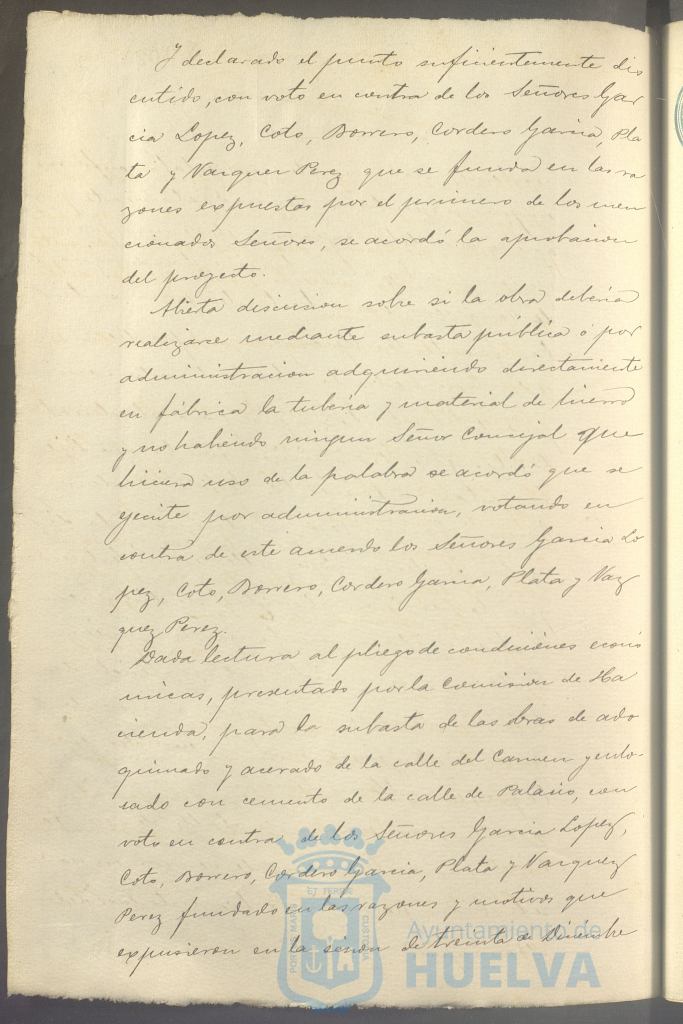 Y declarado el punto suficientemente dis
cutido, con voto en contra de los Señores Gar
cia Lopez, Coto, Borrero, Cordero Garcia, Pla
ta y Vazquez Perez que se funda en las ra
zones expuestas por el primero de los men
cionados Señores, se acordó la aprobacion
del proyecto.
Abierta discusion sobre si la obra deberia
realizarse mediante subasta pública ó por
administracion adquiriendo directamente
en fábrica la tuberia y material de hierro
y no habiendo ningun Señor Concejal que
hiciera uso de la palabra se acordó que se
ejecute por administracion, votando en
contra de este acuerdo los Señores Garcia Lo
pez, Coto, Borrero, Cordero Garcia, Plata y Vaz
quez Perez.
Dada lectura al pliego de condiciones econó
micas, presentado por la Comision de Ha
cienda, para la subasta de las obras de ado
quinado y acerado de la calle del Carmen y enlo-
sado con cemento de la calle de Palacio, con
voto en contra de los Señores Garcia Lopez,
Coto, Borrero, Cordero Garcia, Plata y Vazquez
Perez fundado en las razones y motivos que
expusieron en la sesion de treinta de Diciembre
Ayuntamiento de
HUELVA